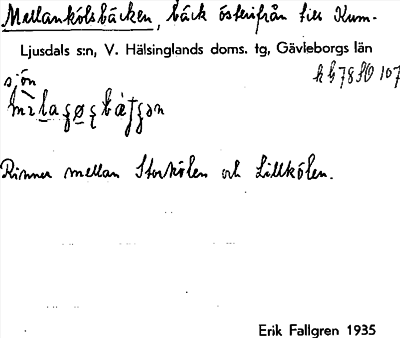 Mellankölsbäcken, bäck österifrån till Kum-
Ljusdals s:n, V. Hälsinglands doms. tg, Gävleborgs län
sjön
Rinner mellan Storkölen och Lillkölen.
Erik Fallgren 1935